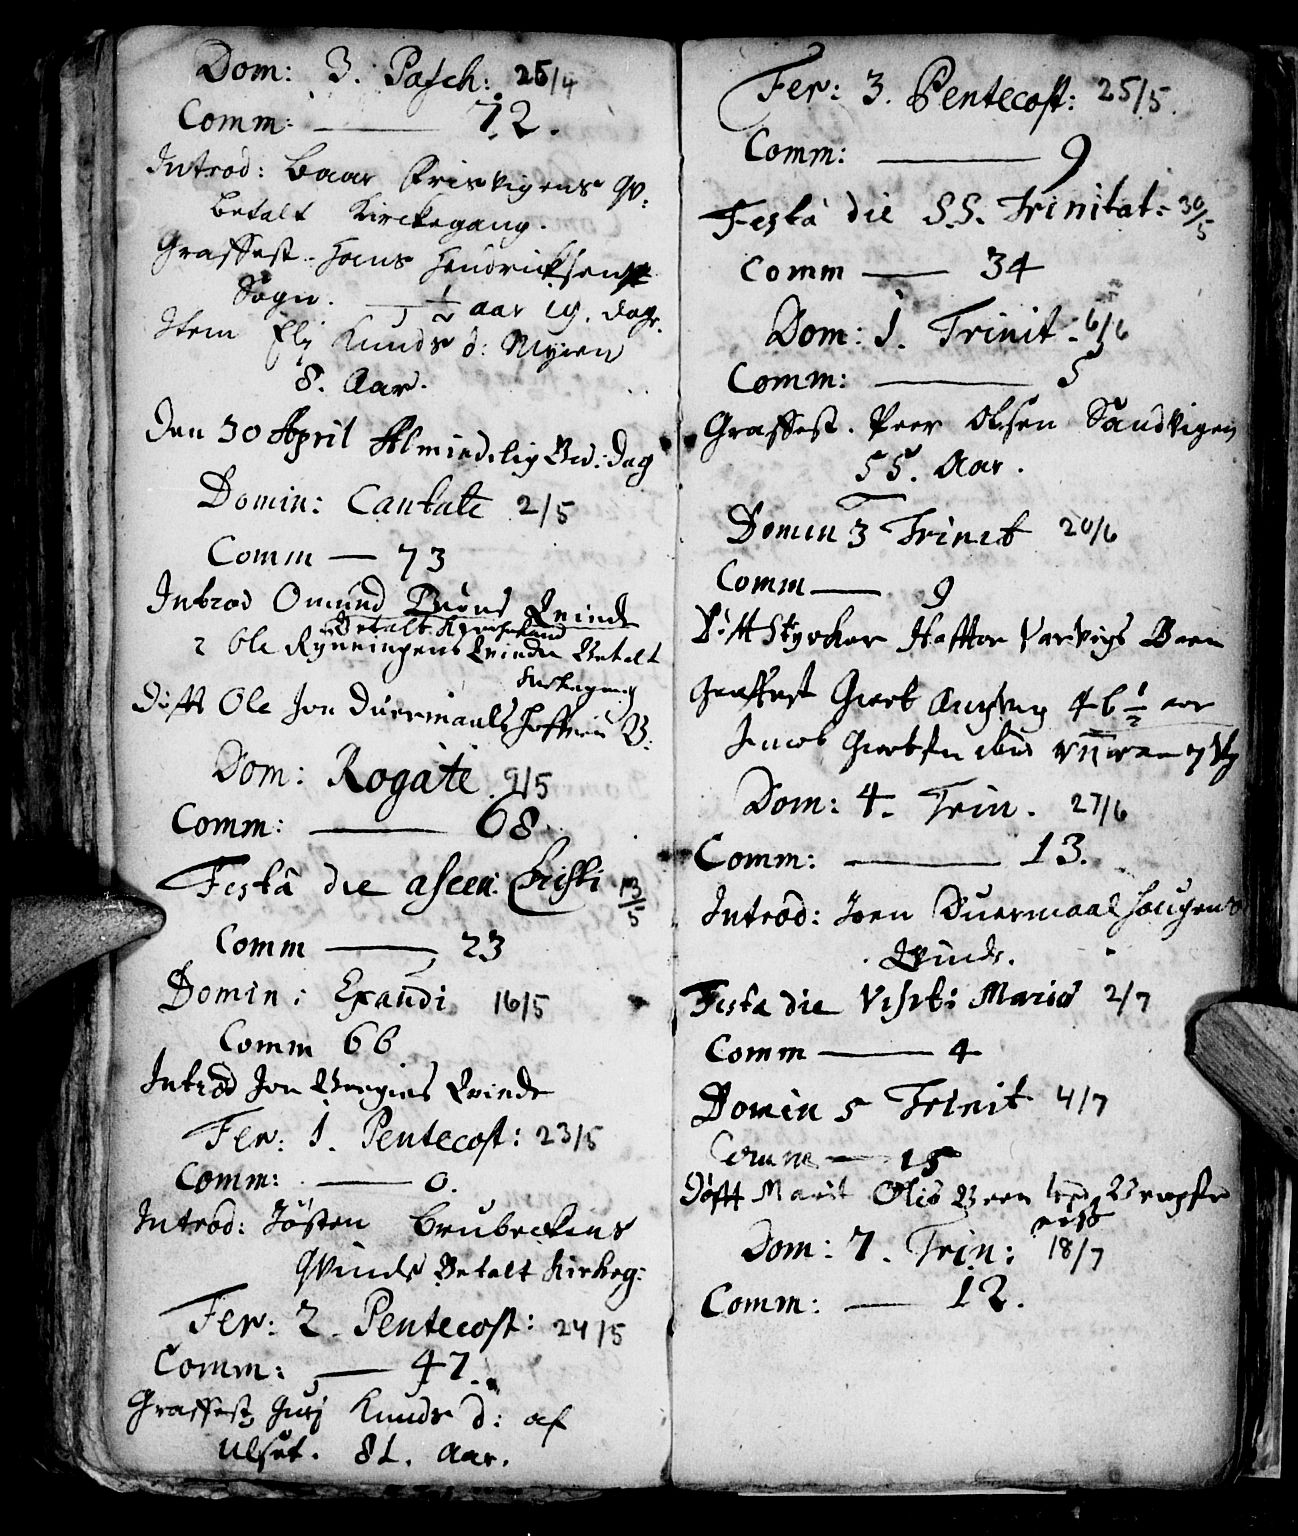 Dom: 3. Pasch: 25/4
Comm: 72.
Introd: Baar Krisvigens qv:
betalt Kirckegang.
Graffest. Hans Hendricksens
Sogn. 1/2 aar 19. dage.
Item Elj Knuds d: Myren
8. Aar.
Den 30 April Almindelig Bed: dag
Domin: Cantate 2/5
Comm 73
Introd Omund Biøns Qvinde
Betalt
2 Ole Rynningens Qvinde Betalt
Kirkegang
Døfft Ole Jon Duermaals B:
Dom: Rogate 9/5
Comm: 68
Festa die ascen: Christi 13/5
Comm 23
Domin: Exaudi 16/5
Comm 66
Introd Jon Qvinde
Fer: 1. Pentecost: 23/5
Comm: 0.
Introd: Jøsten Brubeckens
qvinde Betalt Kirkeg:
Fer: 2. Pentecost: 24/5
Comm: 47.
Graffest Gurj Knuds d: af
Ulset. 81. Aar.
Fer: 3. Pentecost: 25/5.
Comm: 9
Festa die S.S. Trinitat: 30/5
Comm 34
Dom: 1. Trinit: 6/6
Comm: 5
Graffest. Peer Olsen Sandvigen
55. Aar.
Domin 3 Trinit 20/6
Comm 9
Døfft Styrckor Varvigs Barn
Graffest 46 1/2 aar
Jacob
Dom: 4. Trin. 27/6
Comm: 13.
Introd: Joen Duermaal haugens
Qvinde.
Festa die Visit: Maria 2/7
Comm 4
Domin 5 Trinit 4/7
Comm 15
Døfft Marit Olis Barn
Dom: 7. Trin: 18/7
Comm: 12.